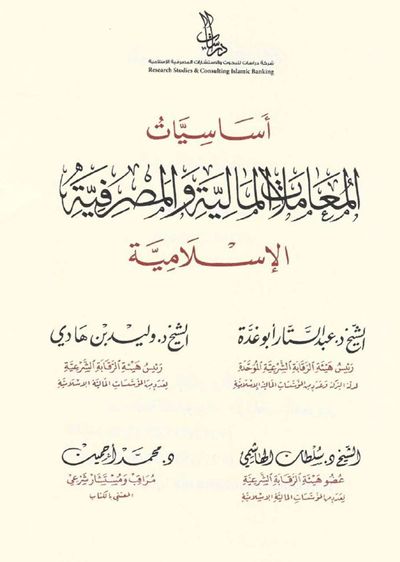 دراسات
شركة دراسات للبحوث والاستشارات المصرفية الإسلامية
Research Studies & Consulting Islamic Banking
أَسَاسِيَّاتُ
المُعَامَلَاتِ المَالِيَّةِ وَالمَصْرِفِيَّةِ
الإِسْلَامِيَّة
الشيخ د. عبد الستار أبو غدة
رئيس هيئة الرقابة الشرعية الموحدة
لدلة البركة وعدد من المؤسسات المالية الإسلامية
الشيخ د. وليد بن هادي
رئيس هيئة الرقابة الشرعية
لعدد من المؤسسات المالية الإسلامية
الشيخ د. سلطان الهاشمي
عضو هيئة الرقابة الشرعية
لعدد من المؤسسات المالية الإسلامية
د. محمد أحمين
مراقب ومستشار شرعي
المعتني بالكتاب